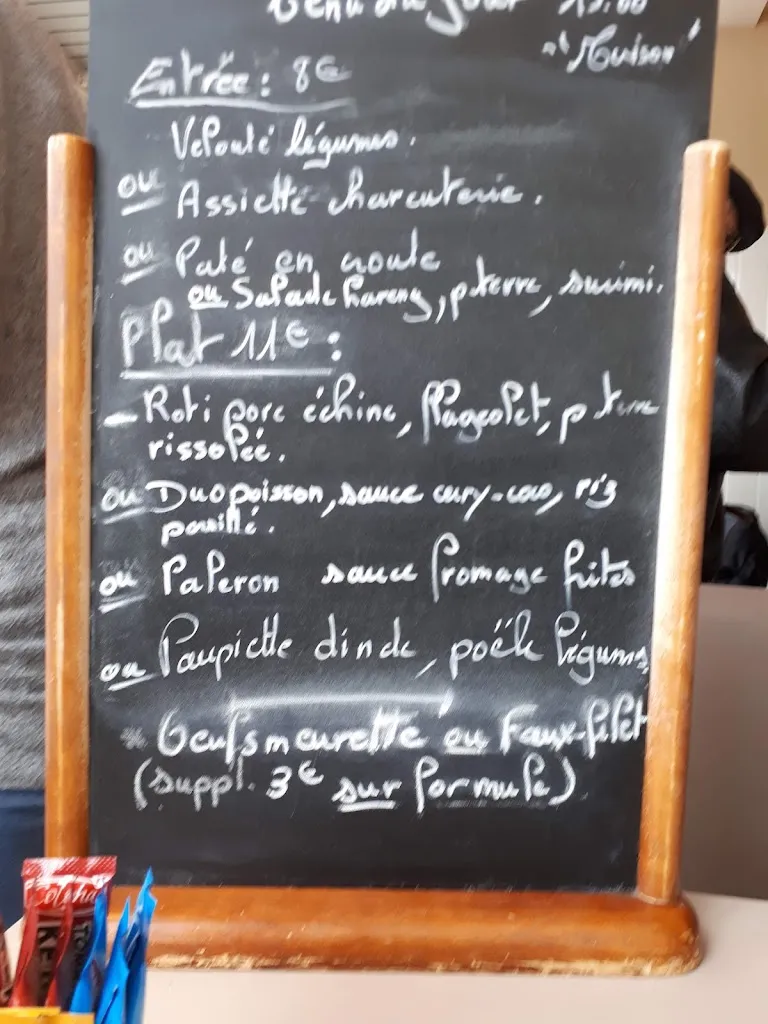 Menu du Jour
"Maison"
Entrée : 8€
Velouté légumes.
ou Assiette charcuterie.
ou Paté en croute
ou Salade hareng, p terre, surimi.
Plat 11€ :
- Roti porc échine, flageolet, p terre
rissolée.
ou Duo poisson, sauce cury-coco, riz
paillé.
ou Paleron sauce fromage frites
ou Paupiette dinde, poëlé légumes
* Oeufs meurette ou Faux-filet
(suppl. 3€ sur formule)